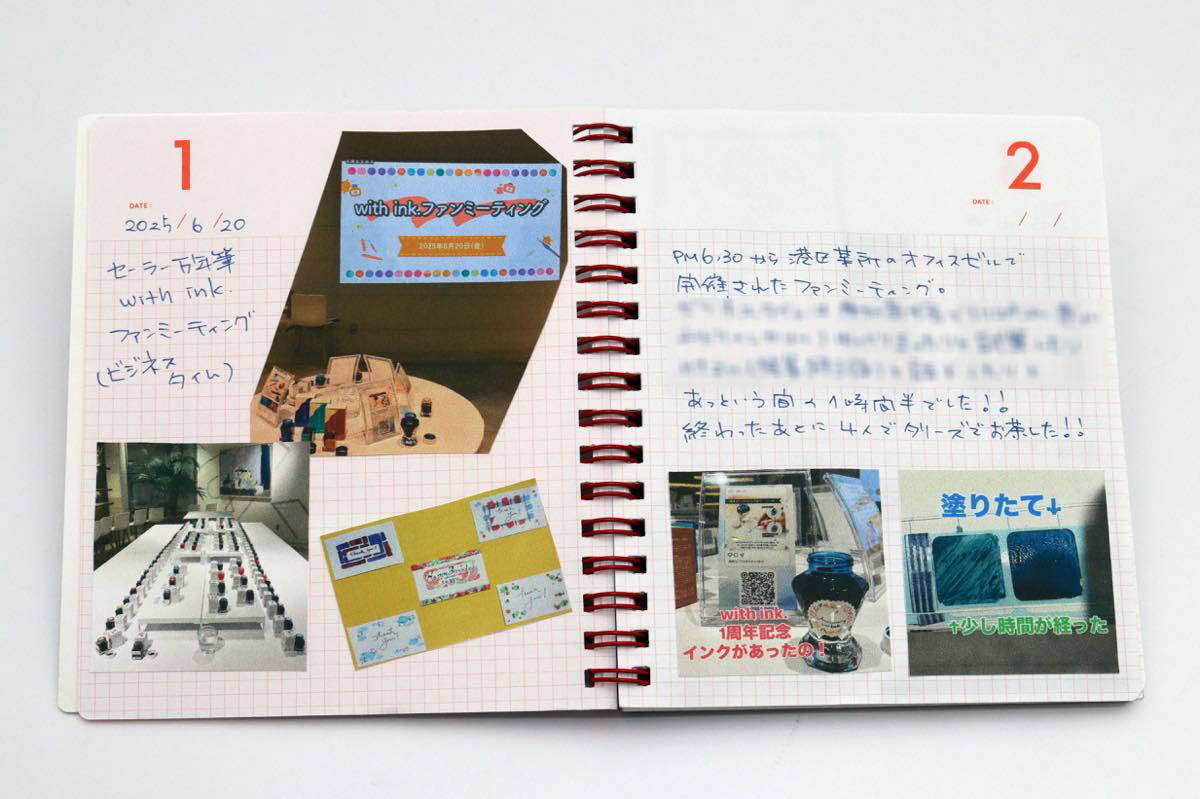 1
DATE:
2025/6/20
セーラー万年筆
with ink.
ファンミーティング
(ビジネス
タイム)
with ink.ファンミーティング
2025年6月20日(金)
Thank you!
thank you!
thank you!
2
DATE:
/ /
PM6:30から港区芝所のオフィスビルで
開催されたファンミーティング。
あっという間の1時間半でした!!
終わったあとに4人でタリーズでお茶した!!
with ink.
1周年記念
インクがあったの!
塗りたて↓
↑少し時間が経った